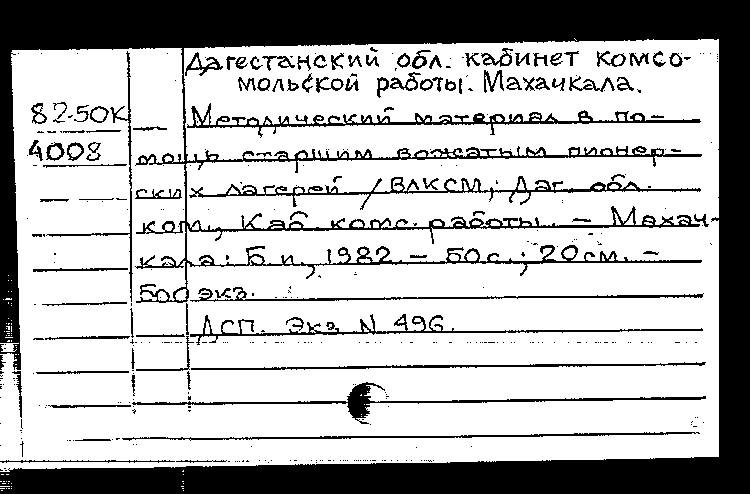 Дагестанский обл. кабинет комсо-
мольской работы. Махачкала.
82-50К Методический материал в по-
4008 мощь старшим вожатым пионер-
ских лагерей /ВЛКСМ, Даг. обл.
ком., Каб. комс. работы. – Махач-
кала: Б.и., 1982. – 50 с.; 20 см. –
500 экз.
ДСП. Экз N 496.